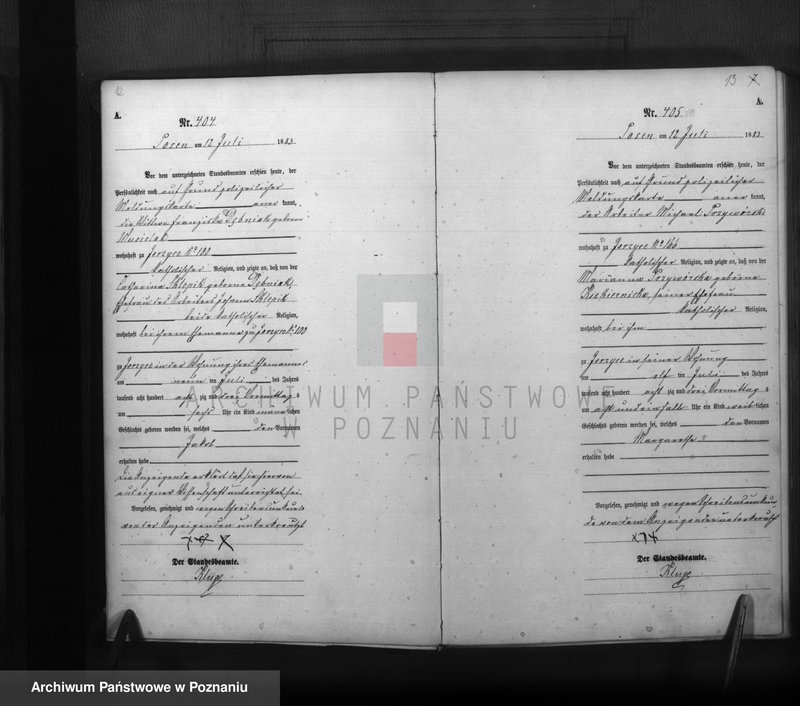 12
A.
Nr. 404
Posen am 12 Juli 1883
Vor dem unterzeichneten Standesbeamten erschien heute, der
Persönlichkeit nach auf Grund polizeilicher
Meldungskarte anerkannt,
die Wittwe Franziska Dębniak geborene
wohnhaft zu Jerzyce No 100
katholischer Religion, und zeigte an, daß von der
Katharina Sklepik geborene Dębniak,
Ehefrau des Arbeiters Johann Sklepik
beide katholischer Religion,
wohnhaft bei ihrem Ehemanne zu Jerzyce No 100
zu Jerzyce in der Wohnung ihres Ehemannes
am neun ten Juli des Jahres
tausend acht hundert acht zig und drei Vormittags
um sechs Uhr ein Kind männlichen
Geschlechts geboren worden sei, welches den Vornamen
Jakob
erhalten habe
Die Anzeigende erklärt daß sie hiervon
aus eigner Wissenschaft unterrichtet sei.
Vorgelesen, genehmigt und wegen Schreibensunkunde
von der Anzeigenden unterkreuzt
+++ X
Der Standesbeamte.
Kluge
13
A.
Nr. 405
Posen am 12 Juli 1883
Vor dem unterzeichneten Standesbeamten erschien heute, der
Persönlichkeit nach auf Grund polizeilicher
Meldungskarte anerkannt,
der Arbeiter Michael
wohnhaft zu Jerzyce No 166
katholischer Religion, und zeigte an, daß von der
Marianna geborene
seiner Ehefrau
katholischer Religion,
wohnhaft bei ihm
zu Jerzyce in seiner Wohnung
am elf ten Juli des Jahres
tausend acht hundert acht zig und drei Vormittags
um acht und ein halb Uhr ein Kind weiblichen
Geschlechts geboren worden sei, welches den Vornamen
Margarethe
erhalten habe
Vorgelesen, genehmigt und wegen Schreibensunkun-
de von dem Anzeigenden unterkreuzt
+++
Der Standesbeamte.
Kluge
ARCHIWUM PAŃSTWOWE
W POZNANIU
Archiwum Państwowe w Poznaniu